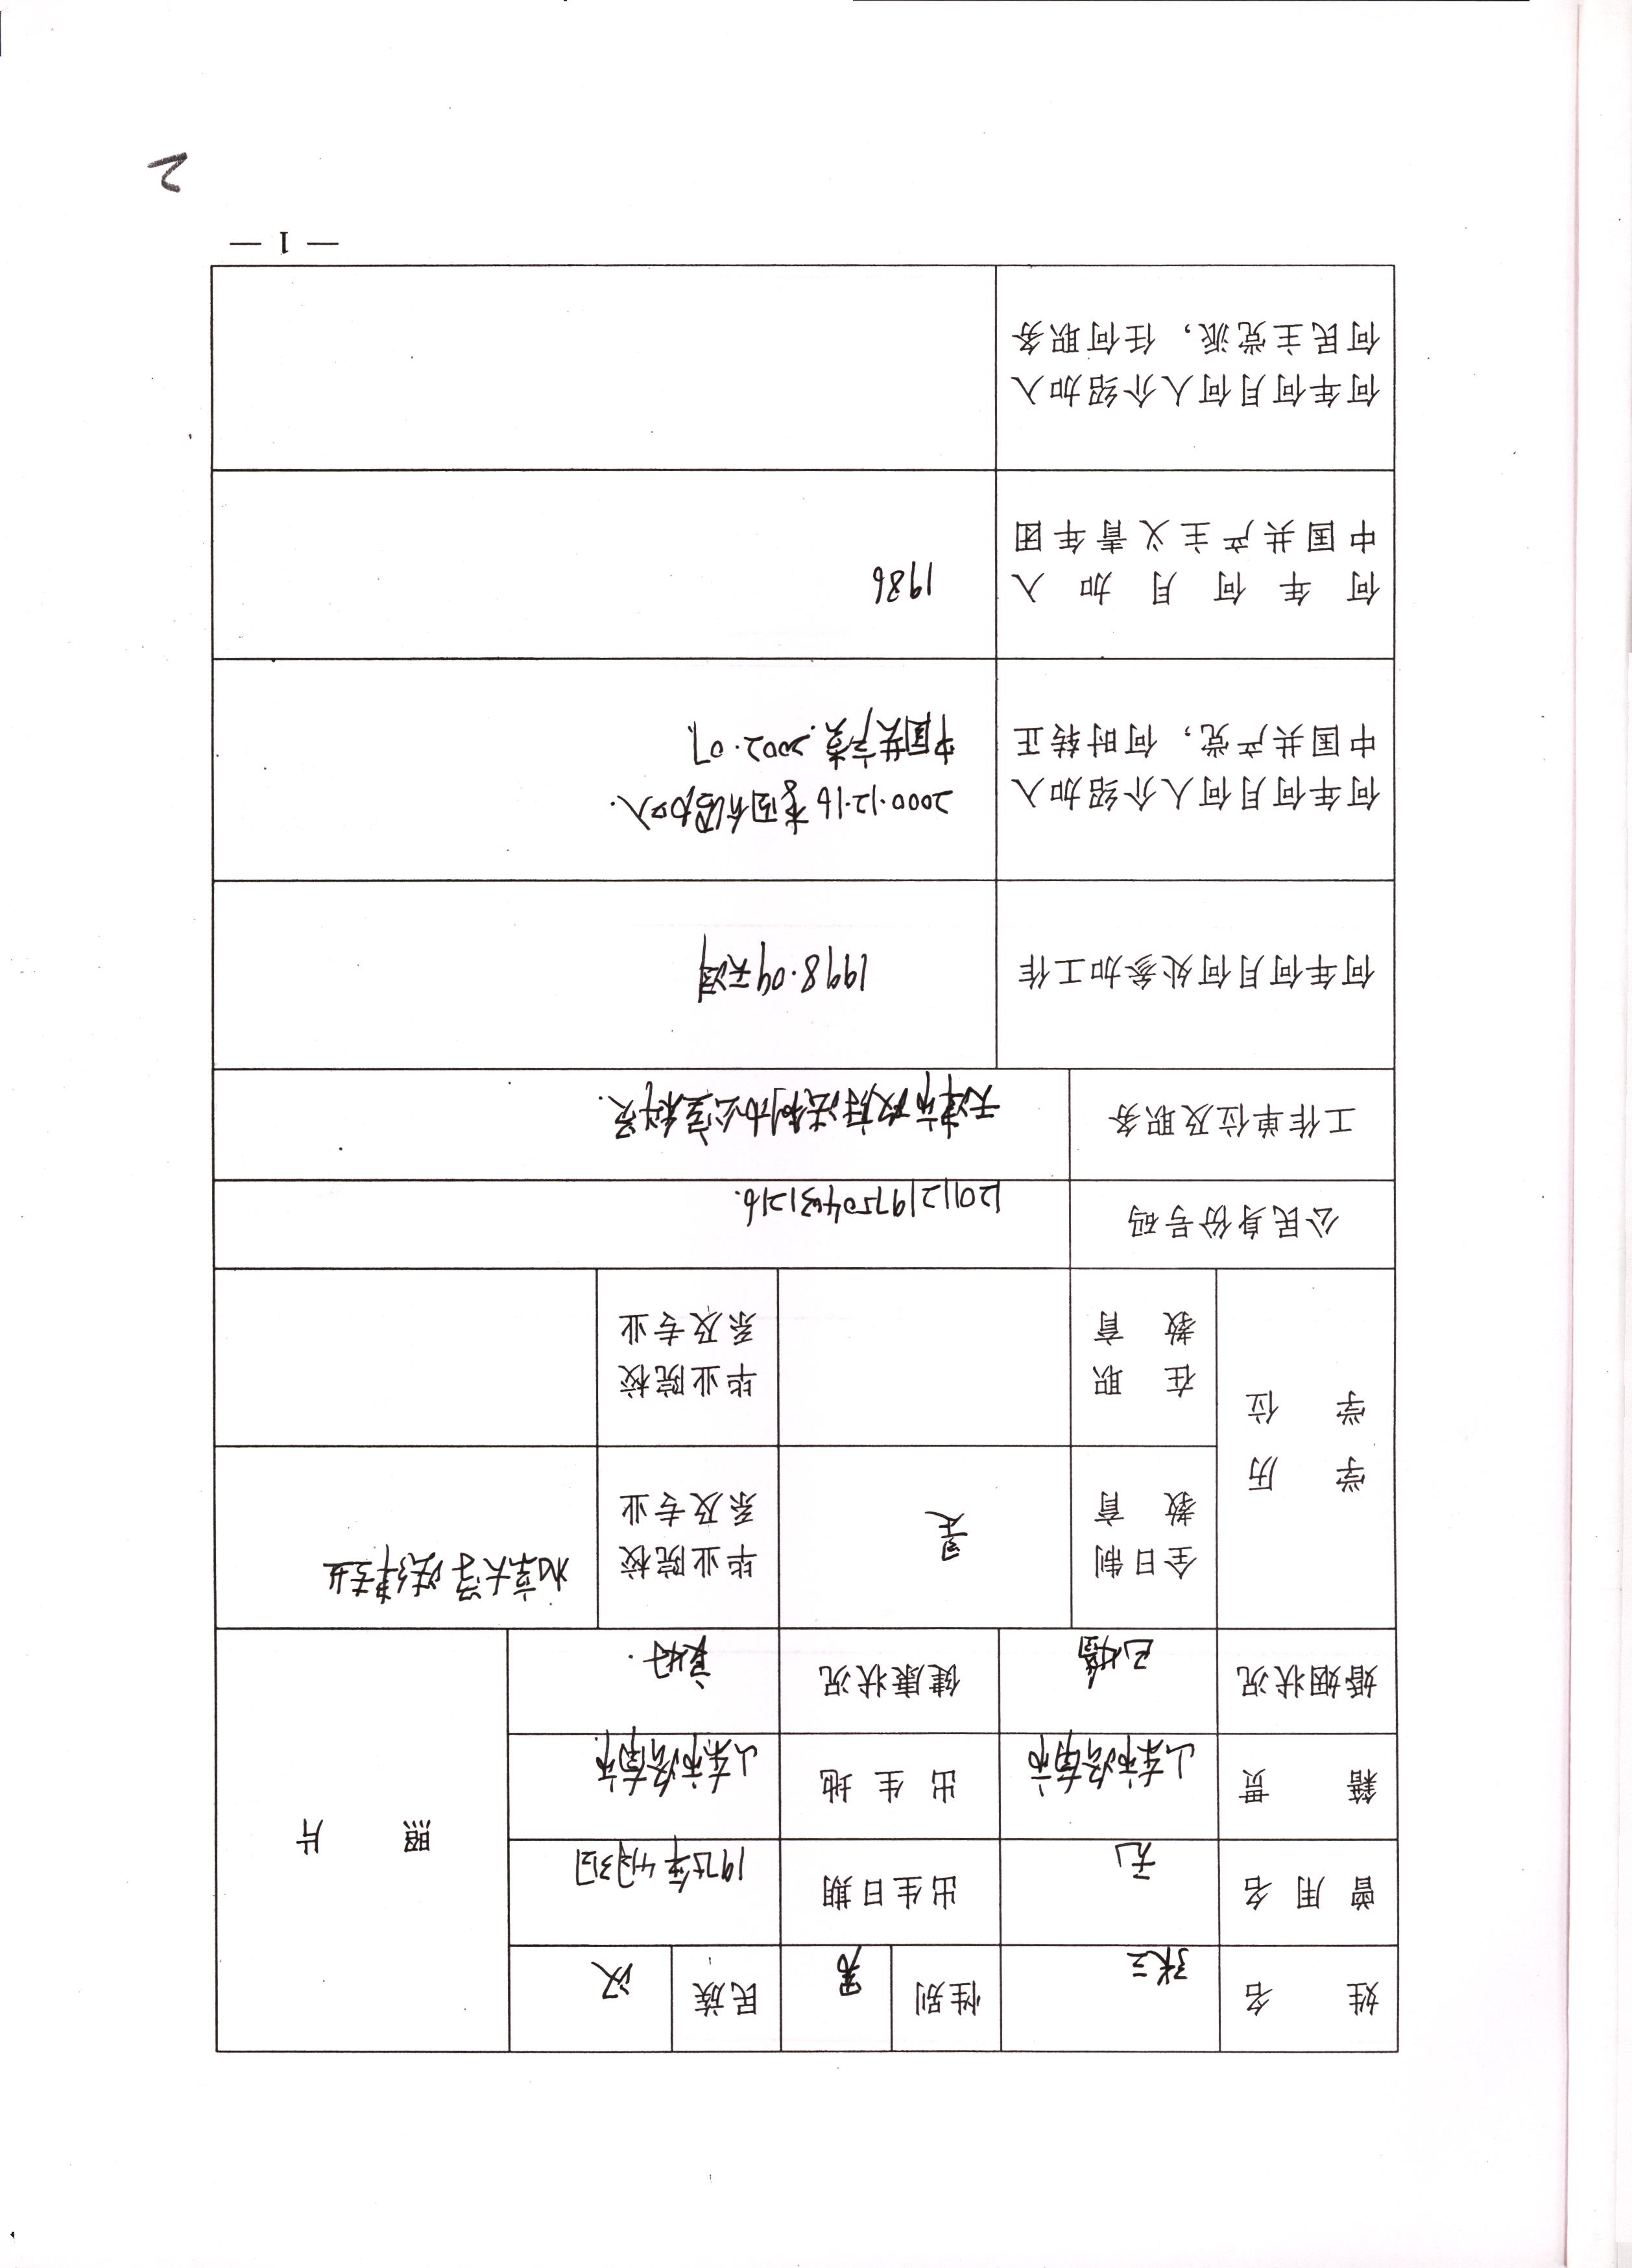 姓 名 张三 性别 男 民族 汉 照 片
曾用名 无 出生日期 1975年4月3日
籍 贯 山东济南市 出生地 山东济南市
婚姻状况 已婚 健康状况 良好.
学 历
学 位
全日制
教 育
是
毕业院校
系及专业
北京大学法律专业
在 职
教 育
毕业院校
系及专业
公民身份号码 120112197504031216.
工作单位及职务 天津市政府法制办公室科员.
何年何月何处参加工作 1998.09天津
何年何月何人介绍加入
中国共产党，何时转正
2000.12.16 李国介绍加入.
中国共产党.2002.07.
何年何月加入
中国共产主义青年团
1986
何年何月何人介绍加入
何民主党派，任何职务
— 1 —
2